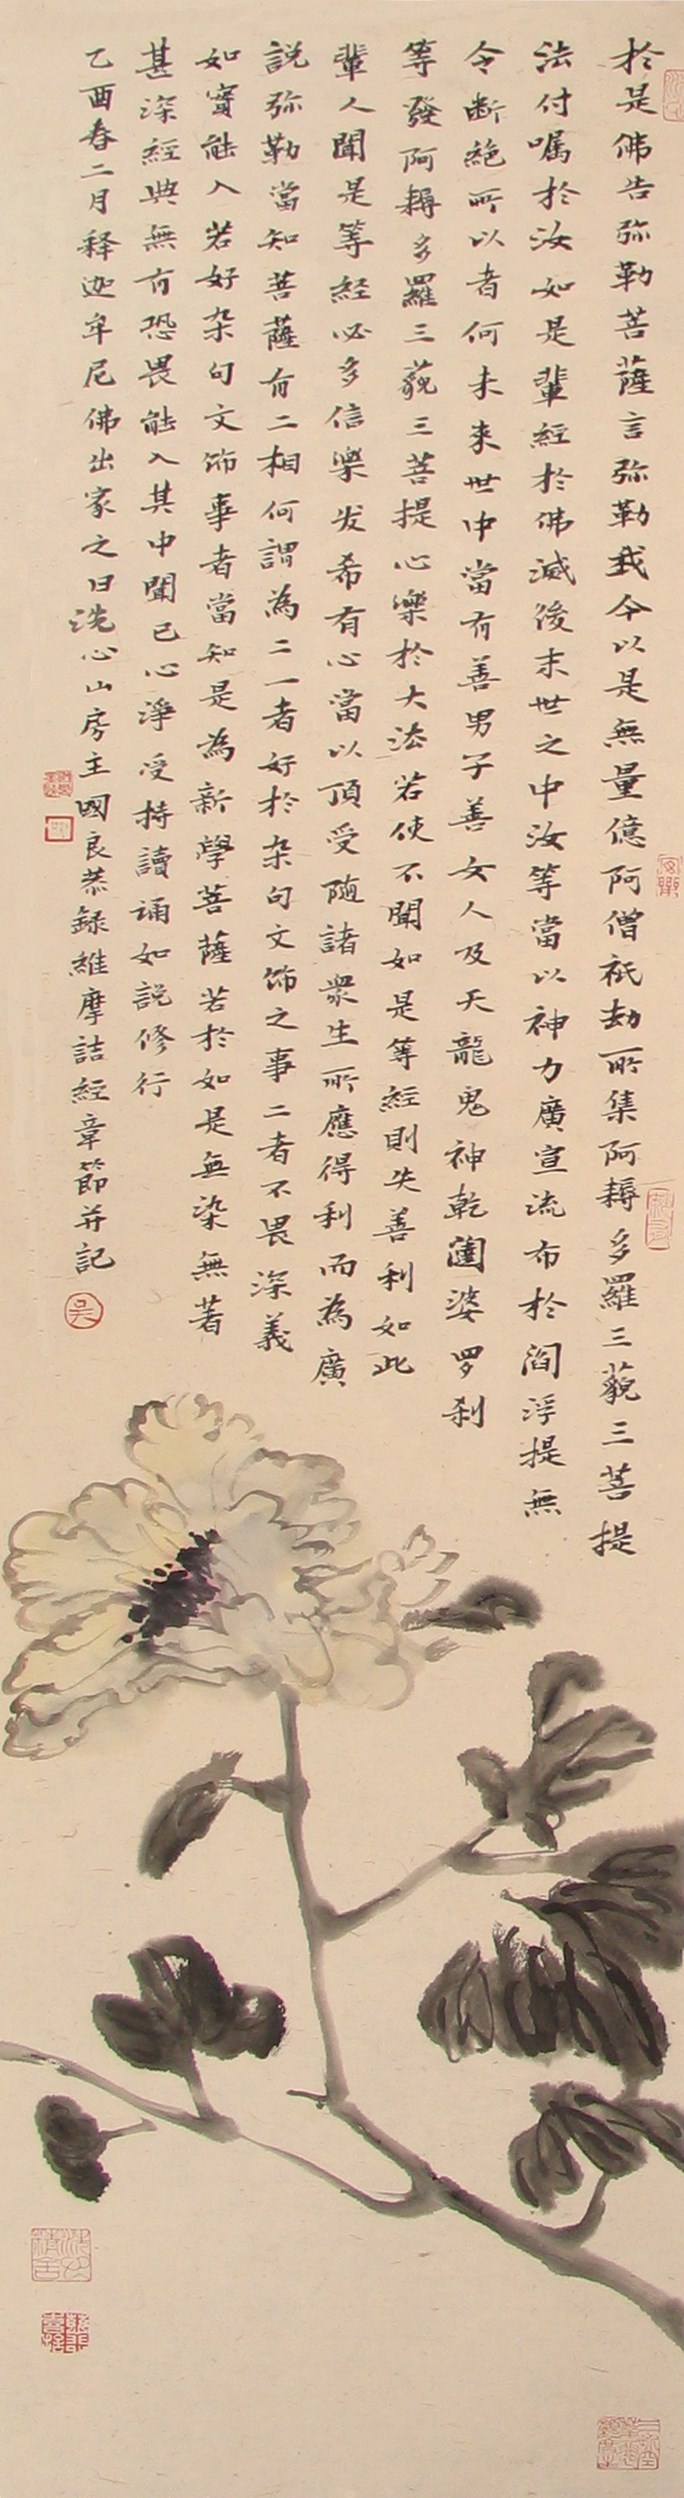 於是佛告弥勒菩薩言弥勒我今以是無量億阿僧祇劫所集阿耨多羅三藐三菩提
法付嘱於汝如是輩經於佛滅後末世之中汝等當以神力廣宣流布於閻浮提無
令断絶所以者何未来世中當有善男子善女人及天龍鬼神乾闥婆罗刹
等發阿耨多羅三藐三菩提心樂於大法若使不聞如是等經則失善利如此
輩人聞是等經必多信樂发希有心當以頂受随諸衆生所應得利而為廣
說弥勒當知菩薩有二相何謂為二一者好於杂句文飾之事二者不畏深義
如實能入若好杂句文飾事者當知是為新學菩薩若於如是無染無著
甚深經典無有恐畏能入其中聞已心淨受持讀诵如說修行
乙酉春二月释迦牟尼佛出家之日洗心山房主國良恭録維摩詰經章節并記
吴